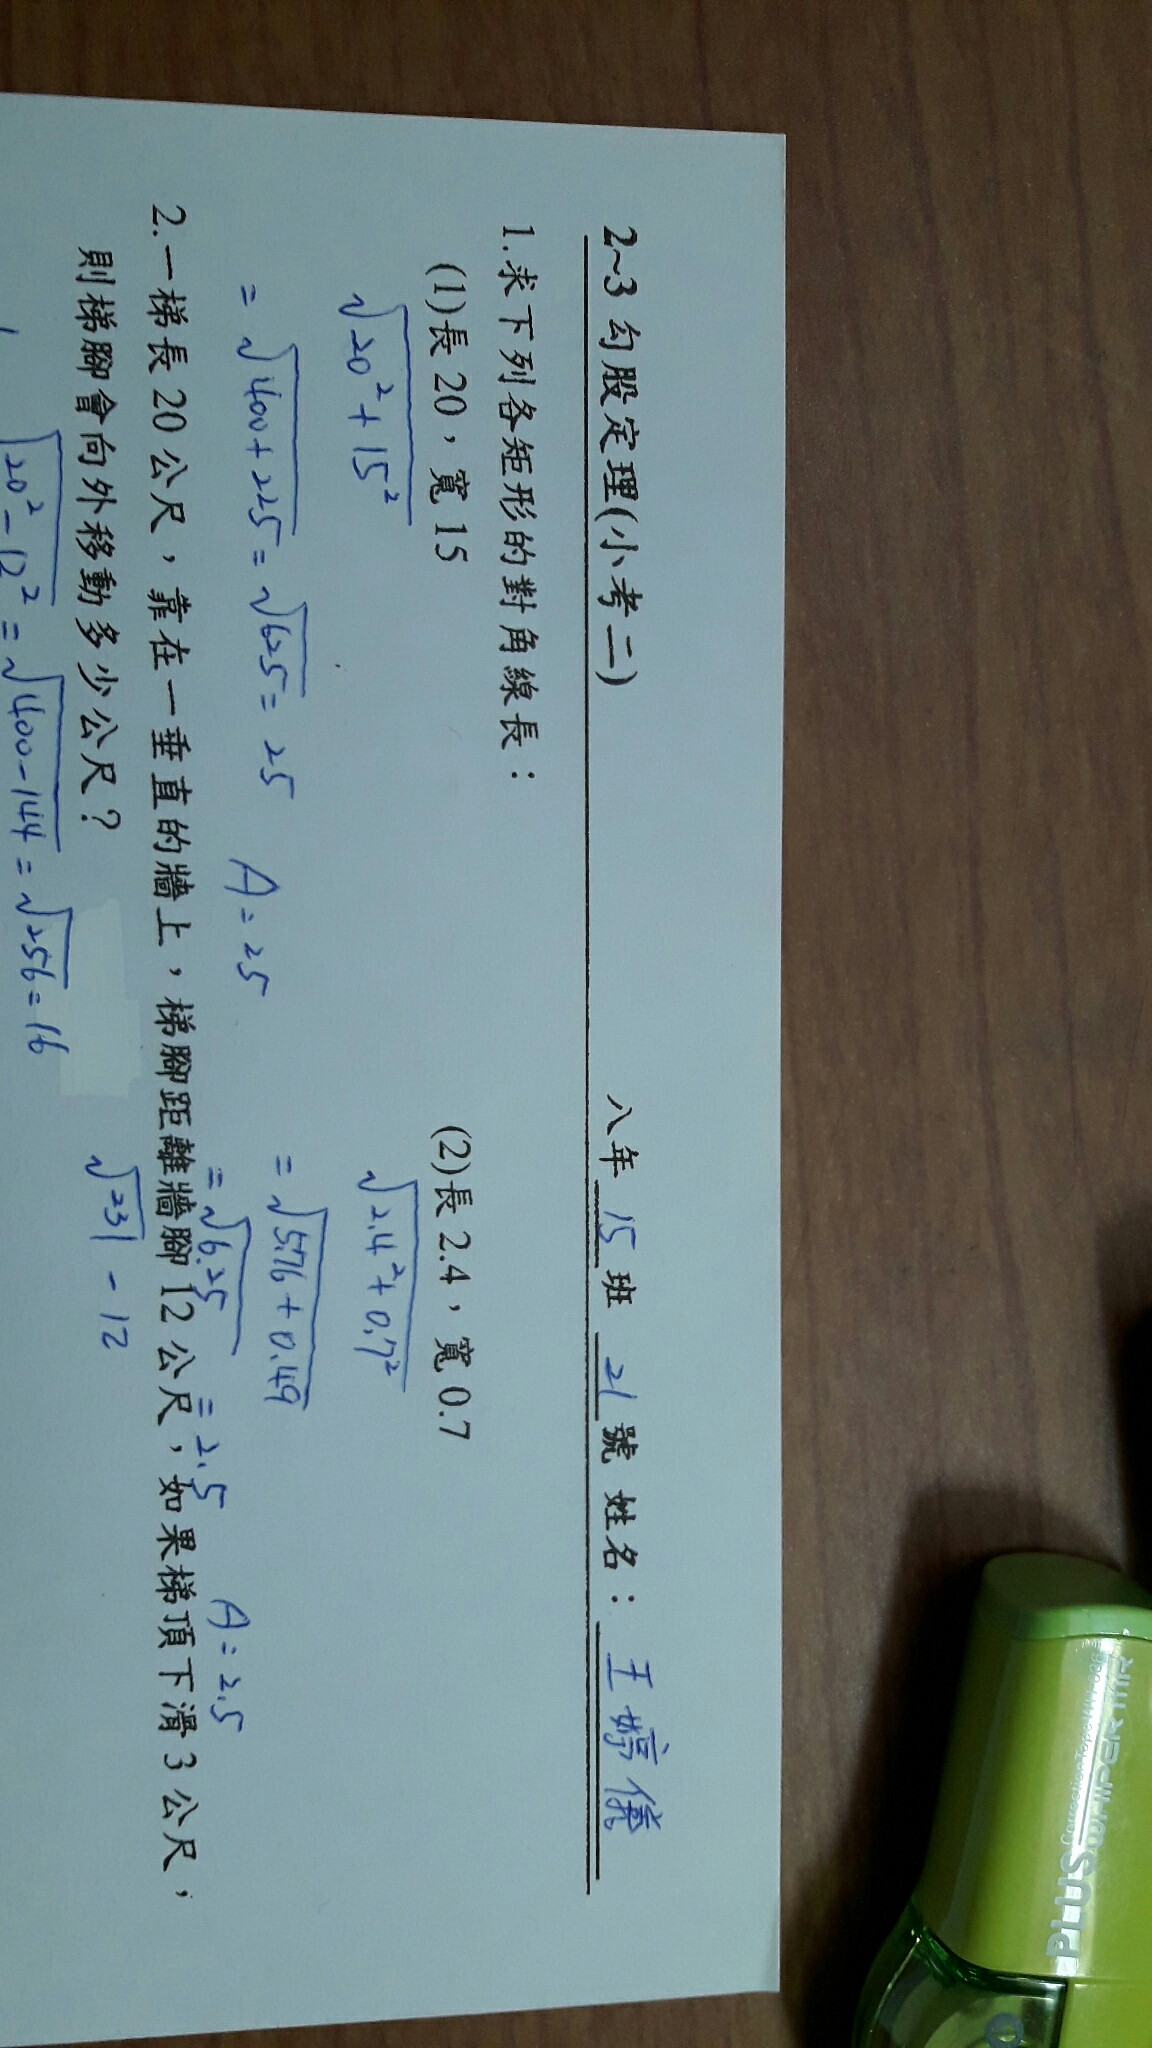 2~3 勾股定理(小考二) 八年 15 班 21 號 姓名: 王婷儀
1.求下列各矩形的對角線長:
(1)長 20,寬 15 (2)長 2.4,寬 0.7
√20²+15² √2.4²+0.7²
=√400+225=√625=25 A=25 =√5.76+0.49
=√6.25 =2.5 A=2.5
2.一梯長 20 公尺,靠在一垂直的牆上,梯腳距離牆腳 12 公尺,如果梯頂下滑 3 公尺,
則梯腳會向外移動多少公尺? √231-12
√20²-12²=√400-144=√256=16
PLUS
WHIPER MR
Correction Tape